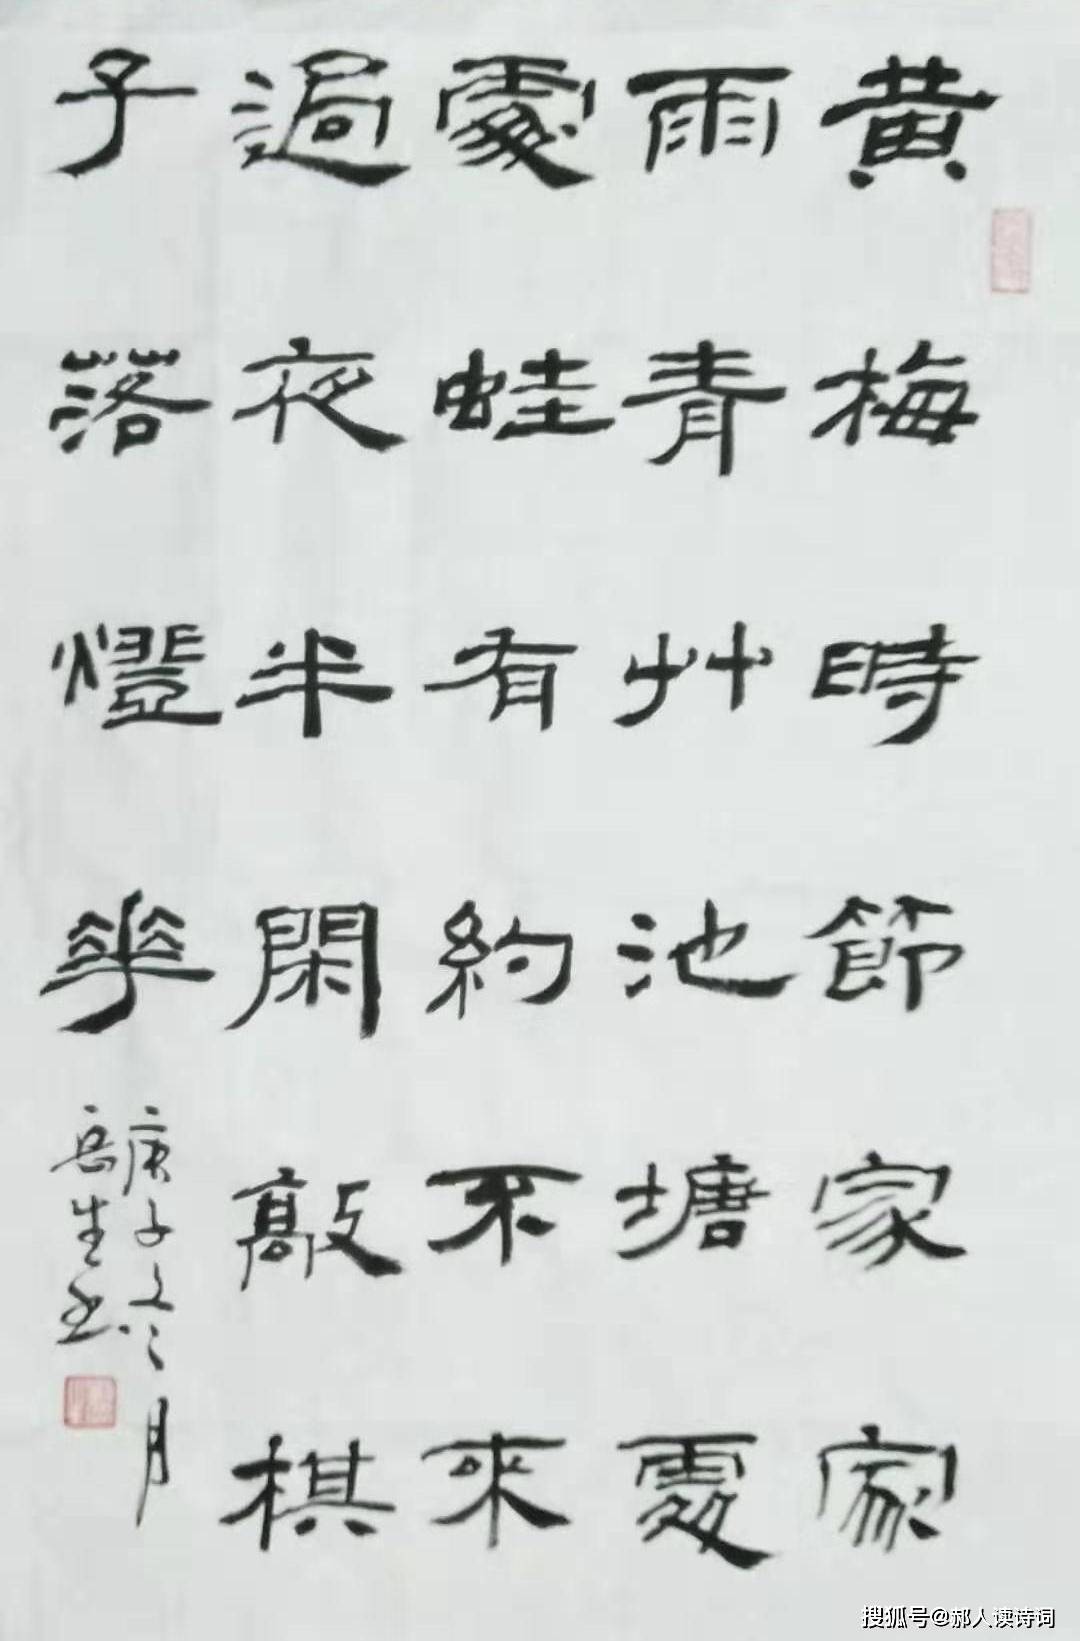 黄梅時節家家
雨青艸池塘處
處蛙有約不來
過夜半閑敲棋
子落燈華
庚子冬月
岳生书
搜狐号@郝人读诗词